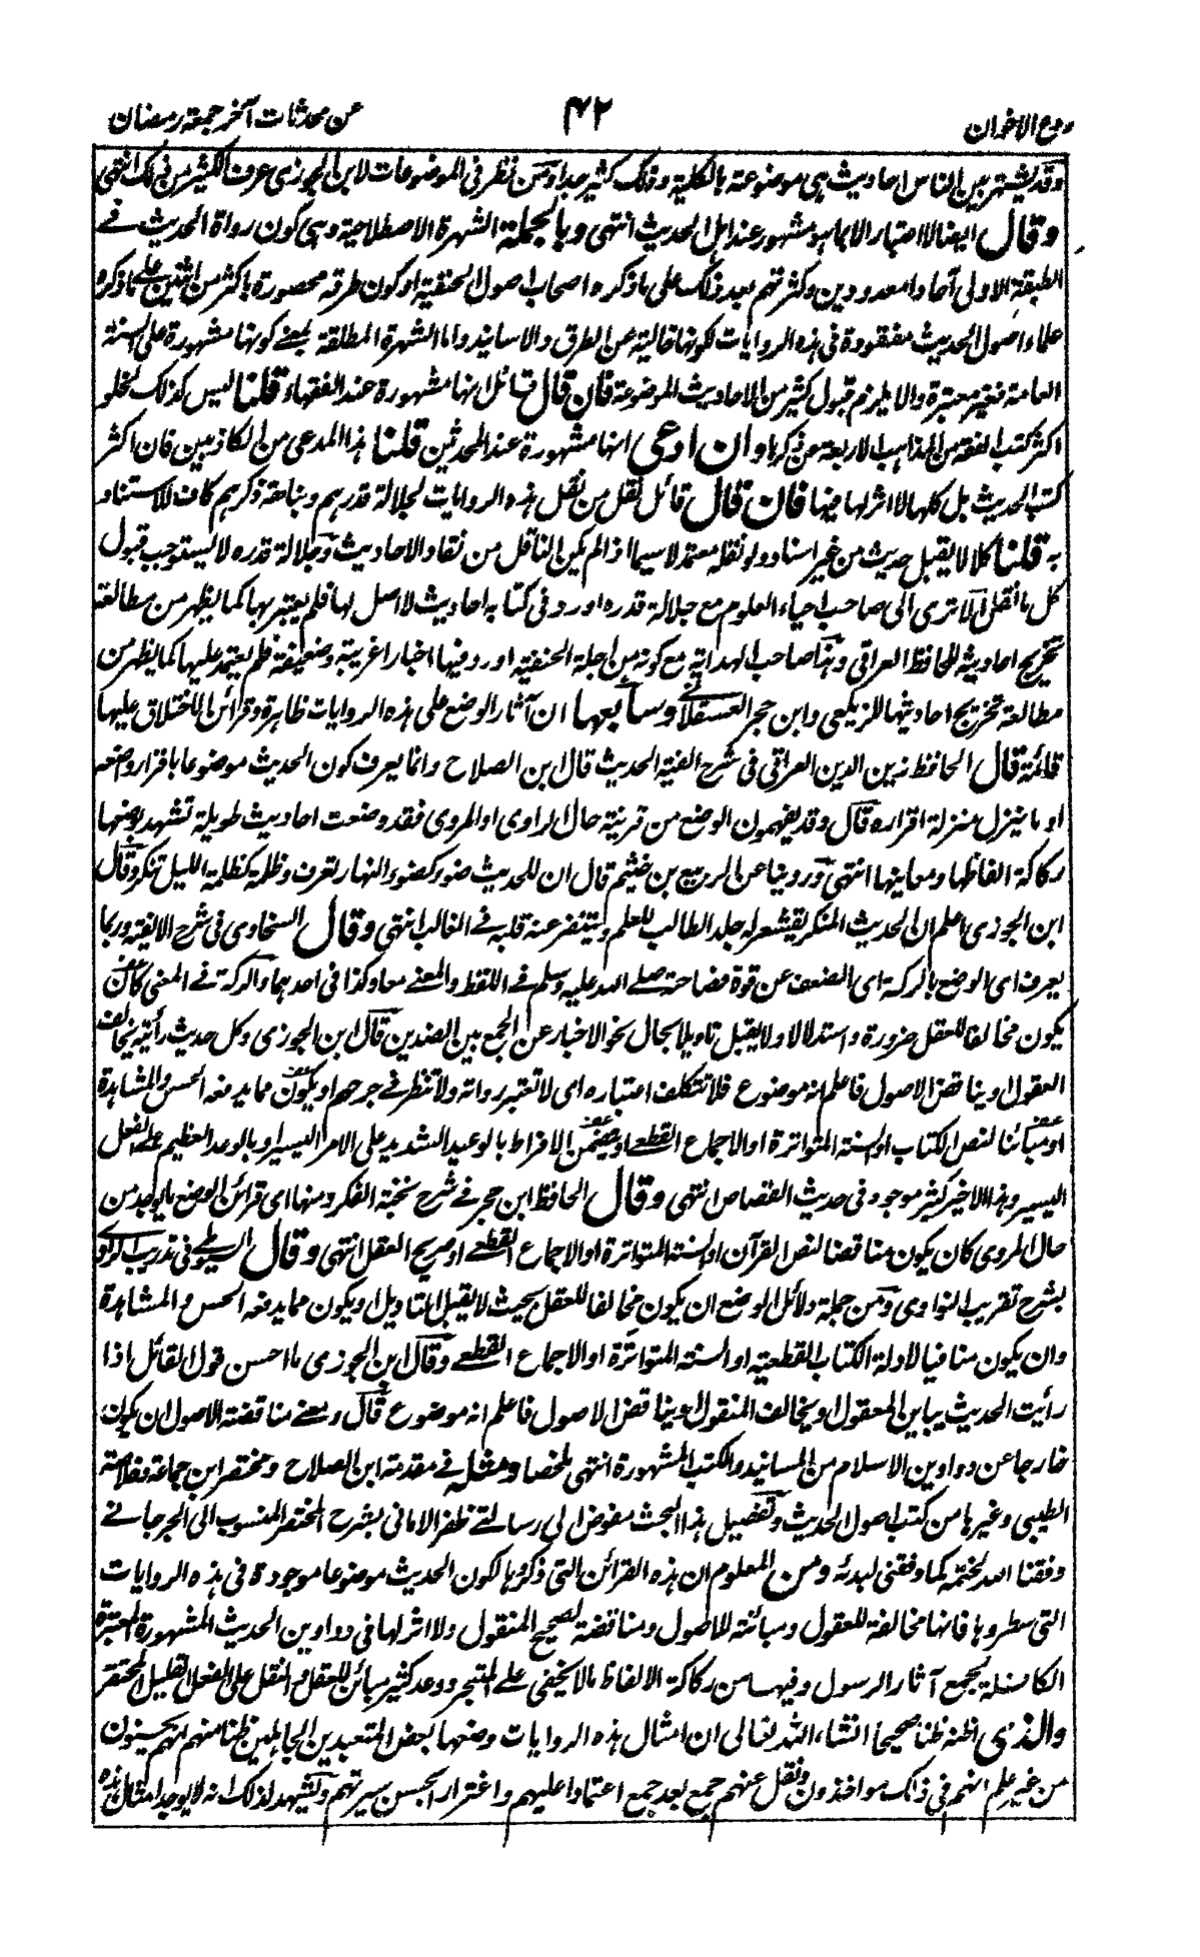 ردع الاخوان
۴۲
عن محدثات آخر جمعة رمضان
وقد يشتهر بين الناس احاديث هي موضوعة بالكلية وذلك كثير جدا ومن نظر في الموضوعات لابن الجوزي عرف الكثير من ذلك انتهى
وقال ايضا لا اعتبار الا بما هو مشهور عند اهل الحديث انتهى وبالجملة الشهرة الاصطلاحية وهي كون رواة الحديث في
الطبقة الاولى آحادا معدودين وكثرتهم بعد ذلك على ما ذكره اصحاب اصول الحنفية او كون طرقه محصورة باكثر من اثنين على ما ذكره
علماء اصول الحديث مفقودة في هذه الروايات لكونها خالية عن الطرق والاسانيد واما الشهرة المطلقة بمعنى كونها مشهورة على السنة
العامة فغير معتبرة والا يلزم قبول كثير من الاحاديث الموضوعة فان قال قائل انها مشهورة عند الفقهاء قلنا ليس كذلك لخلو
اكثر كتب الفقه من المذاهب الاربعة عن ذكرها وان ادعى انها مشهورة عند المحدثين قلنا هذا المدعي من الكاذبين فان اكثر
كتب الحديث بل كلها لا اثر لها فيها فان قال قائل نقل من نقل هذه الروايات لجلالة قدرهم ونباهة ذكرهم كاف للاستناد
به قلنا كلا لا يقبل حديث من غير اسناد ولو نقله معتمد لا سيما اذا لم يكن الناقل من نقاد الاحاديث وجلالة قدره لا يستوجب قبول
كل ما نقل الا ترى الى صاحب احياء العلوم مع جلالة قدره اورد في كتابه احاديث لا اصل لها فلم يعتبر بها كما يظهر من مطالعة
تخريج احاديثه للحافظ العراقي وهذا صاحب الهداية مع كونه من اجلة الحنفية اورد فيها اخبارا غريبة وضعيفة فلم يعتمد عليها كما يظهر من
مطالعة تخريج احاديثها للزيلعي وابن حجر العسقلاني وسابعها ان آثار الوضع على هذه الروايات ظاهرة وقرائن الاختلاق عليها
قائمة قال الحافظ زين الدين العراقي في شرح الفية الحديث قال ابن الصلاح وانما يعرف كون الحديث موضوعا باقرار واضعه
او ما ينزل منزلة اقراره قال وقد يفهمون الوضع من قرينة حال الراوي او المروي فقد وضعت احاديث طويلة تشهد بوضعها
ركاكة الفاظها ومعانيها انتهى وروينا عن الربيع بن خثيم قال ان للحديث ضوء كضوء النهار تعرف وظلمة كظلمة الليل تنكر وقال
ابن الجوزي اعلم ان الحديث المنكر يقشعر له جلد الطالب للعلم ويتنفر عنه قلبه في الغالب انتهى وقال السخاوي في شرح الالفية وربما
يعرف اي الوضع بالركة اي الضعف عن قوة فصاحة صلى الله عليه وسلم في اللفظ والمعنى معا وكذا في احدهما والركة في المعنى كان
يكون مخالفا للعقل ضرورة واستدلالا ولا يقبل تاويلا بحال نحو الاخبار عن الجمع بين الضدين قال ابن الجوزي وكل حديث رأيته يخالف
العقول او يناقض الاصول فاعلم انه موضوع فلا تتكلف اعتباره اي لا تعتبر رواته ولا تنظر في جرحهم او يكون مما يدفعه الحس والمشاهدة
او مباينا لنص الكتاب او السنة المتواترة او الاجماع القطعي او يتضمن الافراط بالوعيد الشديد على الامر اليسير او بالوعد العظيم على الفعل
اليسير وهذا الاخير كثير موجود في حديث القصاص انتهى وقال الحافظ ابن حجر في شرح نخبة الفكر ومنها اي قرائن الوضع ما يوجد من
حال المروي كان يكون مناقضا لنص القرآن او السنة المتواترة او الاجماع القطعي او صريح العقل انتهى وقال السيوطي في تدريب الراوي
بشرح تقريب النواوي ومن جملة دلائل الوضع ان يكون مخالفا للعقل بحيث لا يقبل التاويل او يكون مما يدفعه الحس والمشاهدة
وان يكون منافيا لادلة الكتاب القطعية او السنة المتواترة او الاجماع القطعي وقال ابن الجوزي ما احسن قول القائل اذا
رأيت الحديث يباين المعقول او يخالف المنقول او يناقض الاصول فاعلم انه موضوع قال ومعنى مناقضته الاصول ان يكون
خارجا عن دواوين الاسلام من المسانيد والكتب المشهورة انتهى ملخصا ومثله في مقدمة ابن الصلاح ومختصر ابن جماعة وخلاصة
الطيبي وغيرها من كتب اصول الحديث وتفصيل هذا البحث مفوض الى رسالتي ظفر الاماني بشرح المختصر المنسوب الى الجرجاني
وفقنا الله لختمه كما وفقني لبدئه ومن المعلوم ان هذه القرائن التي ذكروها لكون الحديث موضوعا موجودة في هذه الروايات
التي سطروها فانها مخالفة للعقول ومبائنة للاصول ومناقضة لصحيح المنقول ولا اثر لها في دواوين الحديث المشهورة المعتبرة
الكافلة بجمع آثار الرسول وفيها من ركاكة الالفاظ ما لا يخفى على المتبحر ووعد كثير مبائن للعقل والنقل على الفعل القليل المحتقر
والذي اظنه ظنا صحيحا انشاء الله تعالى ان امثال هذه الروايات وضعها بعض المتعبدين الجاهلين ظنا منهم انهم يحسنون
من غير علم انهم في ذلك مواخذون ونقل عنهم جمع بعد جمع اعتمادا عليهم واغترارا بحسن سيرتهم ويشهد لذلك انه لا يوجد امثال هذه